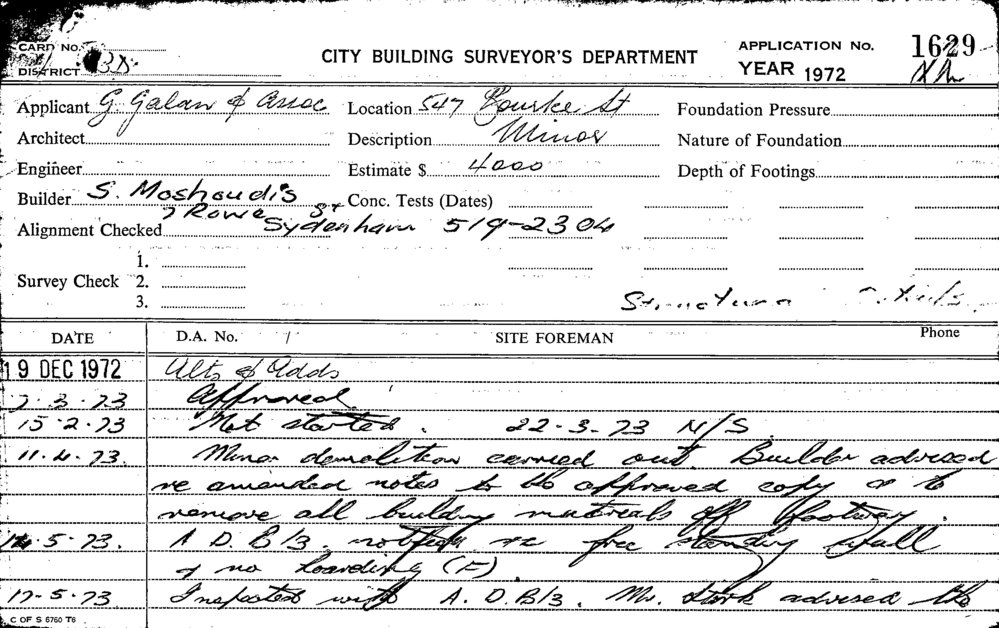 CARD No.
DISTRICT 3D.
CITY BUILDING SURVEYOR'S DEPARTMENT
APPLICATION No. 1629
YEAR 1972
Applicant G. Galan & Assoc
Location 547 Bourke St
Foundation Pressure
Architect
Description Minor
Nature of Foundation
Engineer
Estimate $ 4000
Depth of Footings
Builder S. Moshoudis
7 Rowe St
Conc. Tests (Dates)
Alignment Checked
Sydenham 519-2304
Survey Check
1.
2.
3.
Structural
DATE D.A. No. SITE FOREMAN Phone
19 DEC 1972 Alts & Adds
7.3.73 Approved
15.2.73 Not started. 22-3-73 N/S
11.4.73. Minor demolition carried out. Builder advised
re amended notes to be approved copy & to
remove all building materials off footway.
14.5.73. A.D.B/3. notified re free standing wall
& no hoarding (F).
17-5.73 Inspected with A.D.B/3. Mr. Stork advised the
C OF S 6760 T6